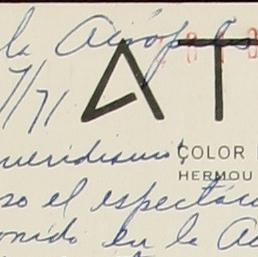 la Acróp
7/71
AT
queridisim
COLOR
HERMOU
so el espectácu
onido en la Ac